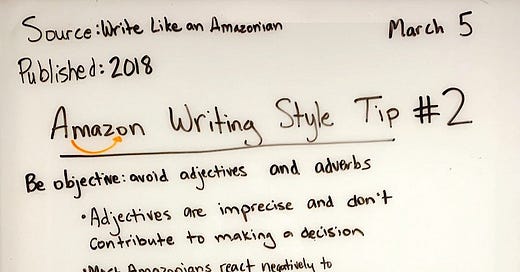 Source: Write Like an Amazonian
March 5
Published: 2018
Amazon Writing Style Tip #2
Be objective: avoid adjectives and adverbs
• Adjectives are imprecise and don't
contribute to making a decision
• Most Amazonians react negatively to